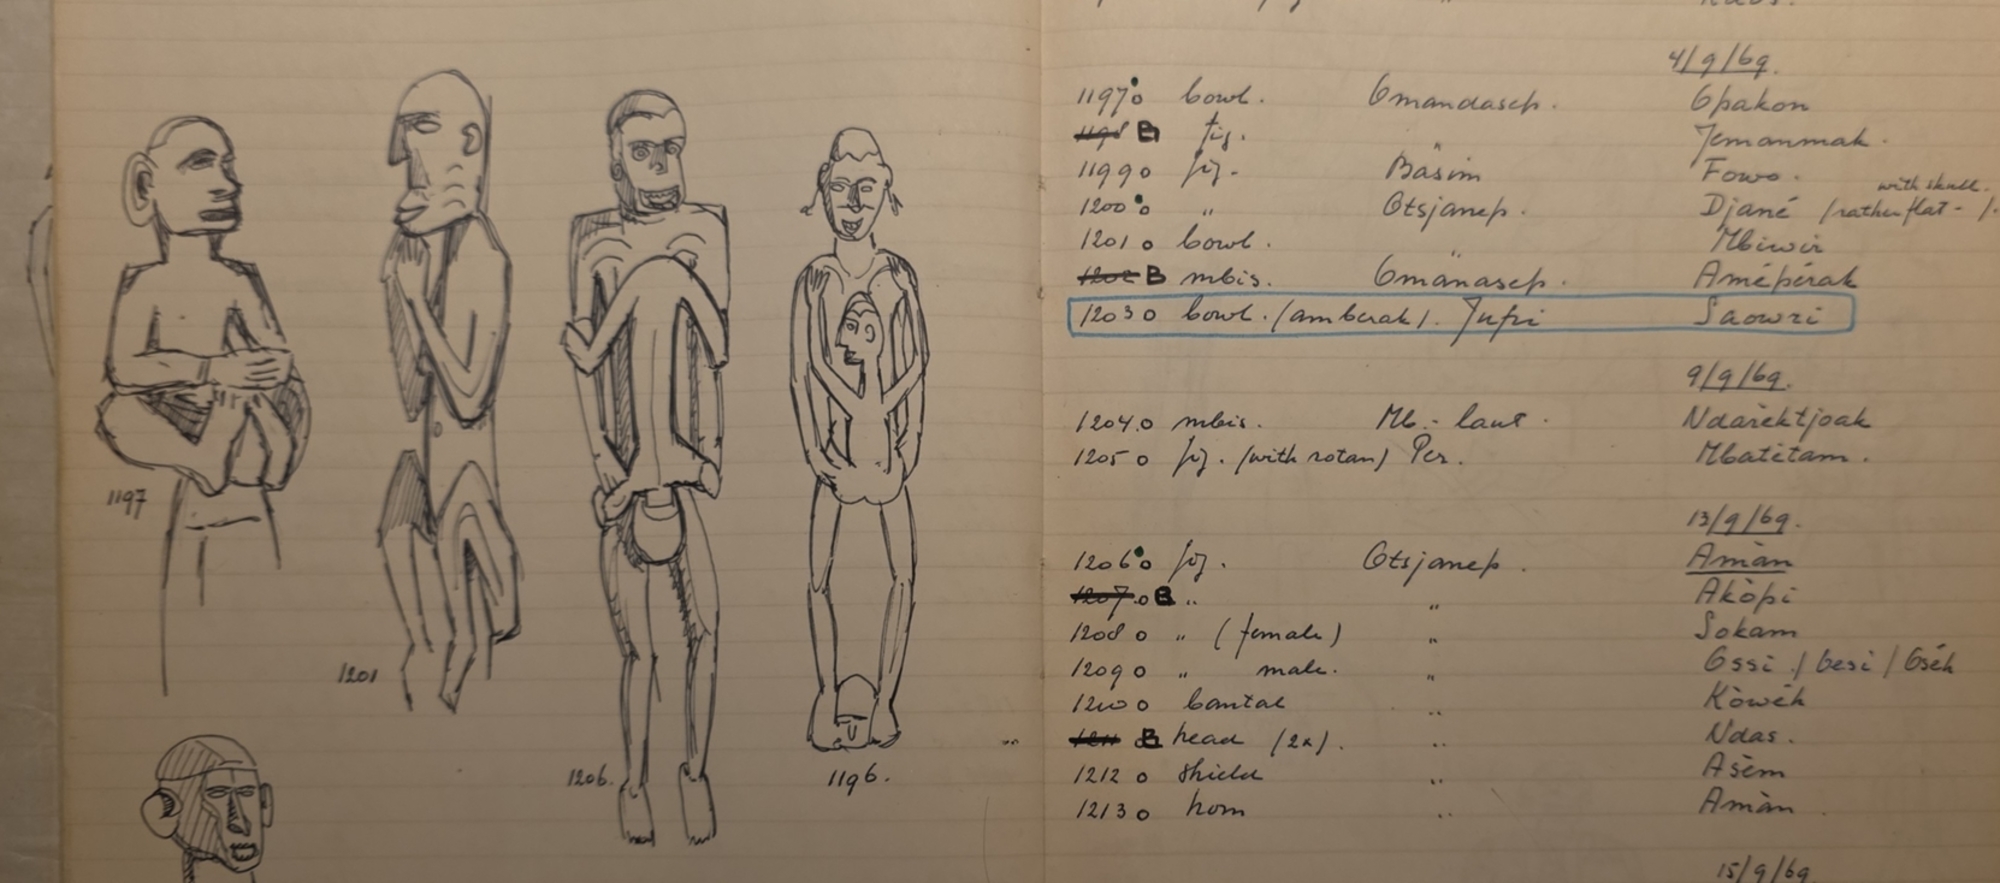 1197
1201
1206.
1196.
4/9/69.
1197 o bowl. Omandasep. Opakon
1198 B fig. Jemanmak.
1199 o fig. Basim Fowo.
with skull.
1200 o " Otsjanep. Djané (rather flat - ).
1201 o bowl. " Mbiwir
1202 B mbis. Omanasep. Amépérak
1203 o bowl. (amberak). Jufri Saowzi
9/9/69.
1204 o mbis. Mb. - laut. Ndarektjoak
1205 o fig. (with rotan) Per. Mbatétam.
13/9/69.
1206 o fig. Otsjanep. Amàn
1207 o B " " Akòpi
1208 o " (female) " Sokam
1209 o " male. " Ossi / besi / Oséh
1210 o bantal " Kòwéh
1211 B head (2x). " Ndas.
1212 o shield " Asèm
1213 o horn " Amàn
15/9/69